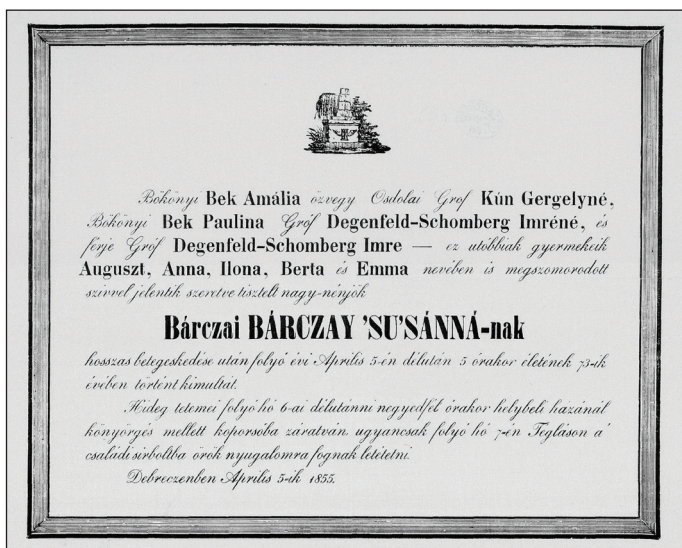 Bökönyi Bek Amália özvegy Osdolai Gróf Kún Gergelyné,
Bökönyi Bek Paulina Gróf Degenfeld-Schomberg Imréné, és
férje Gróf Degenfeld-Schomberg Imre — ez utóbbiak gyermekeik
Auguszt, Anna, Ilona, Berta és Emma nevében is megszomorodott
szivvel jelentik szeretve tisztelt nagy-nénjök
Bárczai BÁRCZAY 'SU'SÁNNÁ-nak
hosszas betegeskedése után folyó évi Április 5-én délután 5 órakor életének 73-ik
évében történt kimultát.
Hideg tetemei folyó hó 6-ai délutánni negyedfél órakor helybeli házánál
könyörgés mellett koporsóba záratván, ugyancsak folyó hó 7-én Tégláson a'
családi sirboltba örök nyugalomra fognak letétetni.
Debreczenben Április 5-ik 1855.